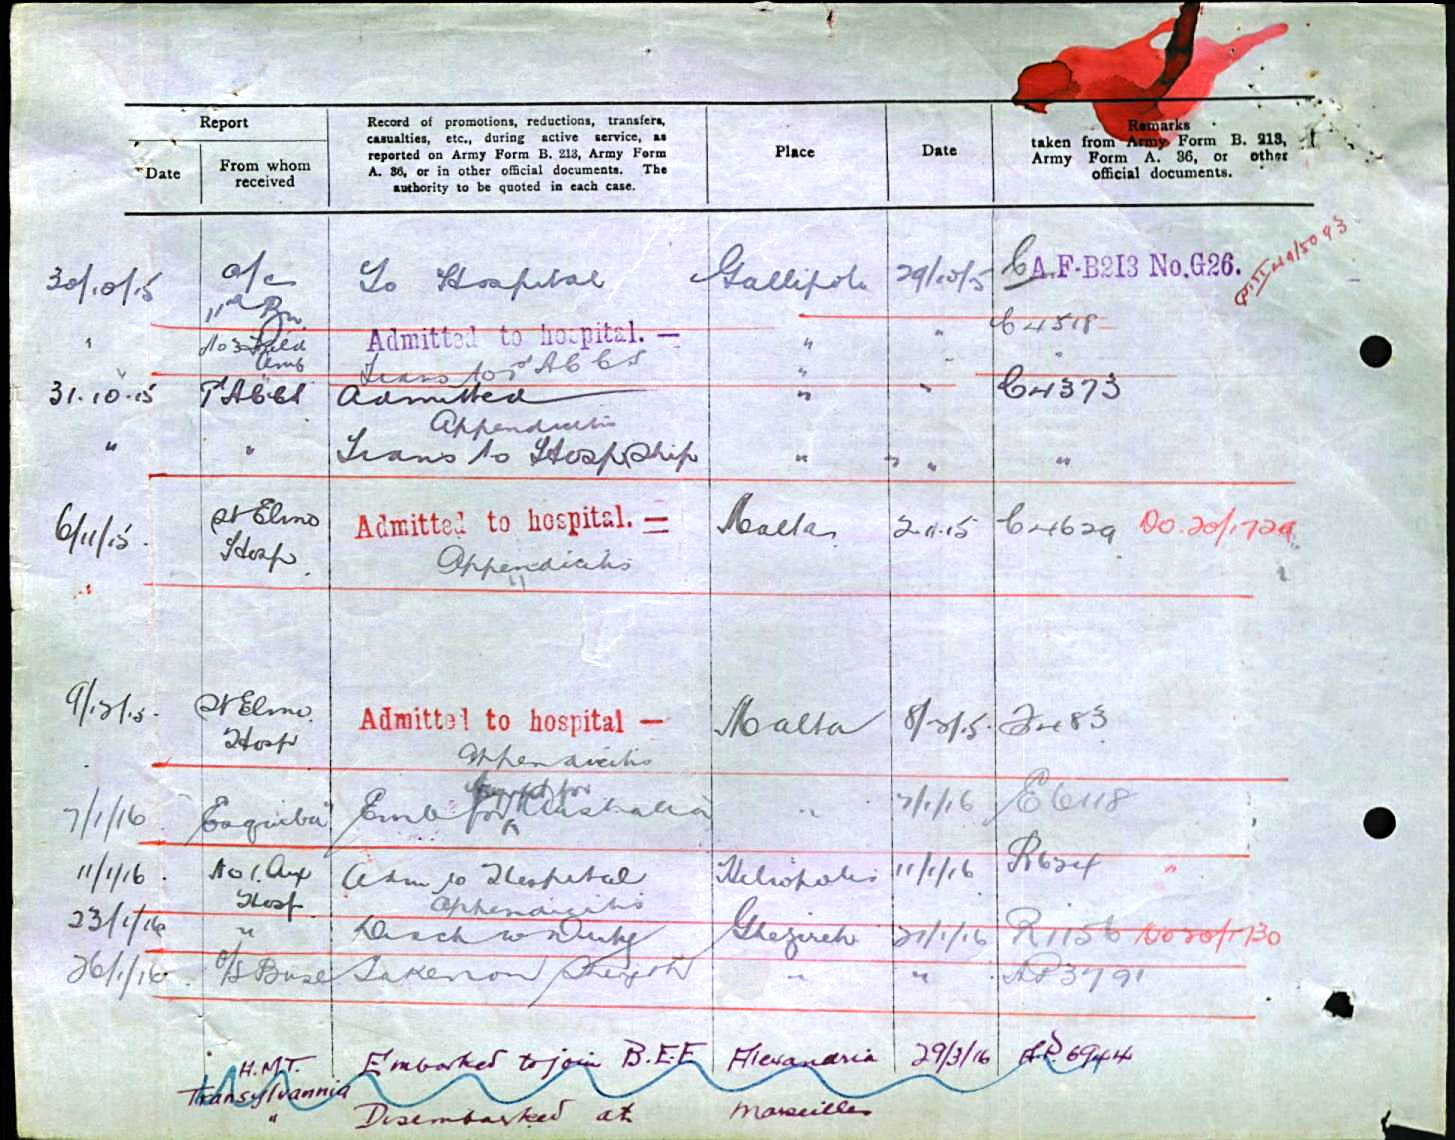 Report
Date
From whom received
Record of promotions, reductions, transfers,
casualties, etc., during active service, as
reported on Army Form B. 213, Army Form
A. 36, or in other official documents. The
authority to be quoted in each case.
Place
Date
Remarks
taken from Army Form B. 213,
Army Form A. 36, or other
official documents.
30/10/15 o/c To Hospital Gallipoli 29/10/15 A.F-B213 No.G26.
" Bn
" No 3 Field Amb Admitted to hospital. — " " C4518
Trans to 1st ACCS "
31.10.15 1st ACCS Admitted " " C4373
Appendicitis
" " Trans to Hosp Ship " " "
6/11/15. St Elmo Hosp. Admitted to hospital. = Malta 2.11.15 C4629 DO.20/1729
Appendicitis
"
9/12/15. St Elmo. Hosp Admitted to hospital — Malta 8/12/15.
appendicitis
7/1/16 Emb for Australia " 7/1/16 E6118
11/1/16. No 1. Aux Hosp. Adm to Hospital Heliopolis 11/1/16 R624 "
appendicitis
23/1/16 " Disch to Duty Ghezireh 21/1/16 R1156 DO 20/1730
26/1/16. O/S Base Taken on Strength " " AP3791
H.M.T. Embarked to join B.E.F Alexandria 29/3/16 A.P. 6944
Transylvannia
" Disembarked at Marseilles